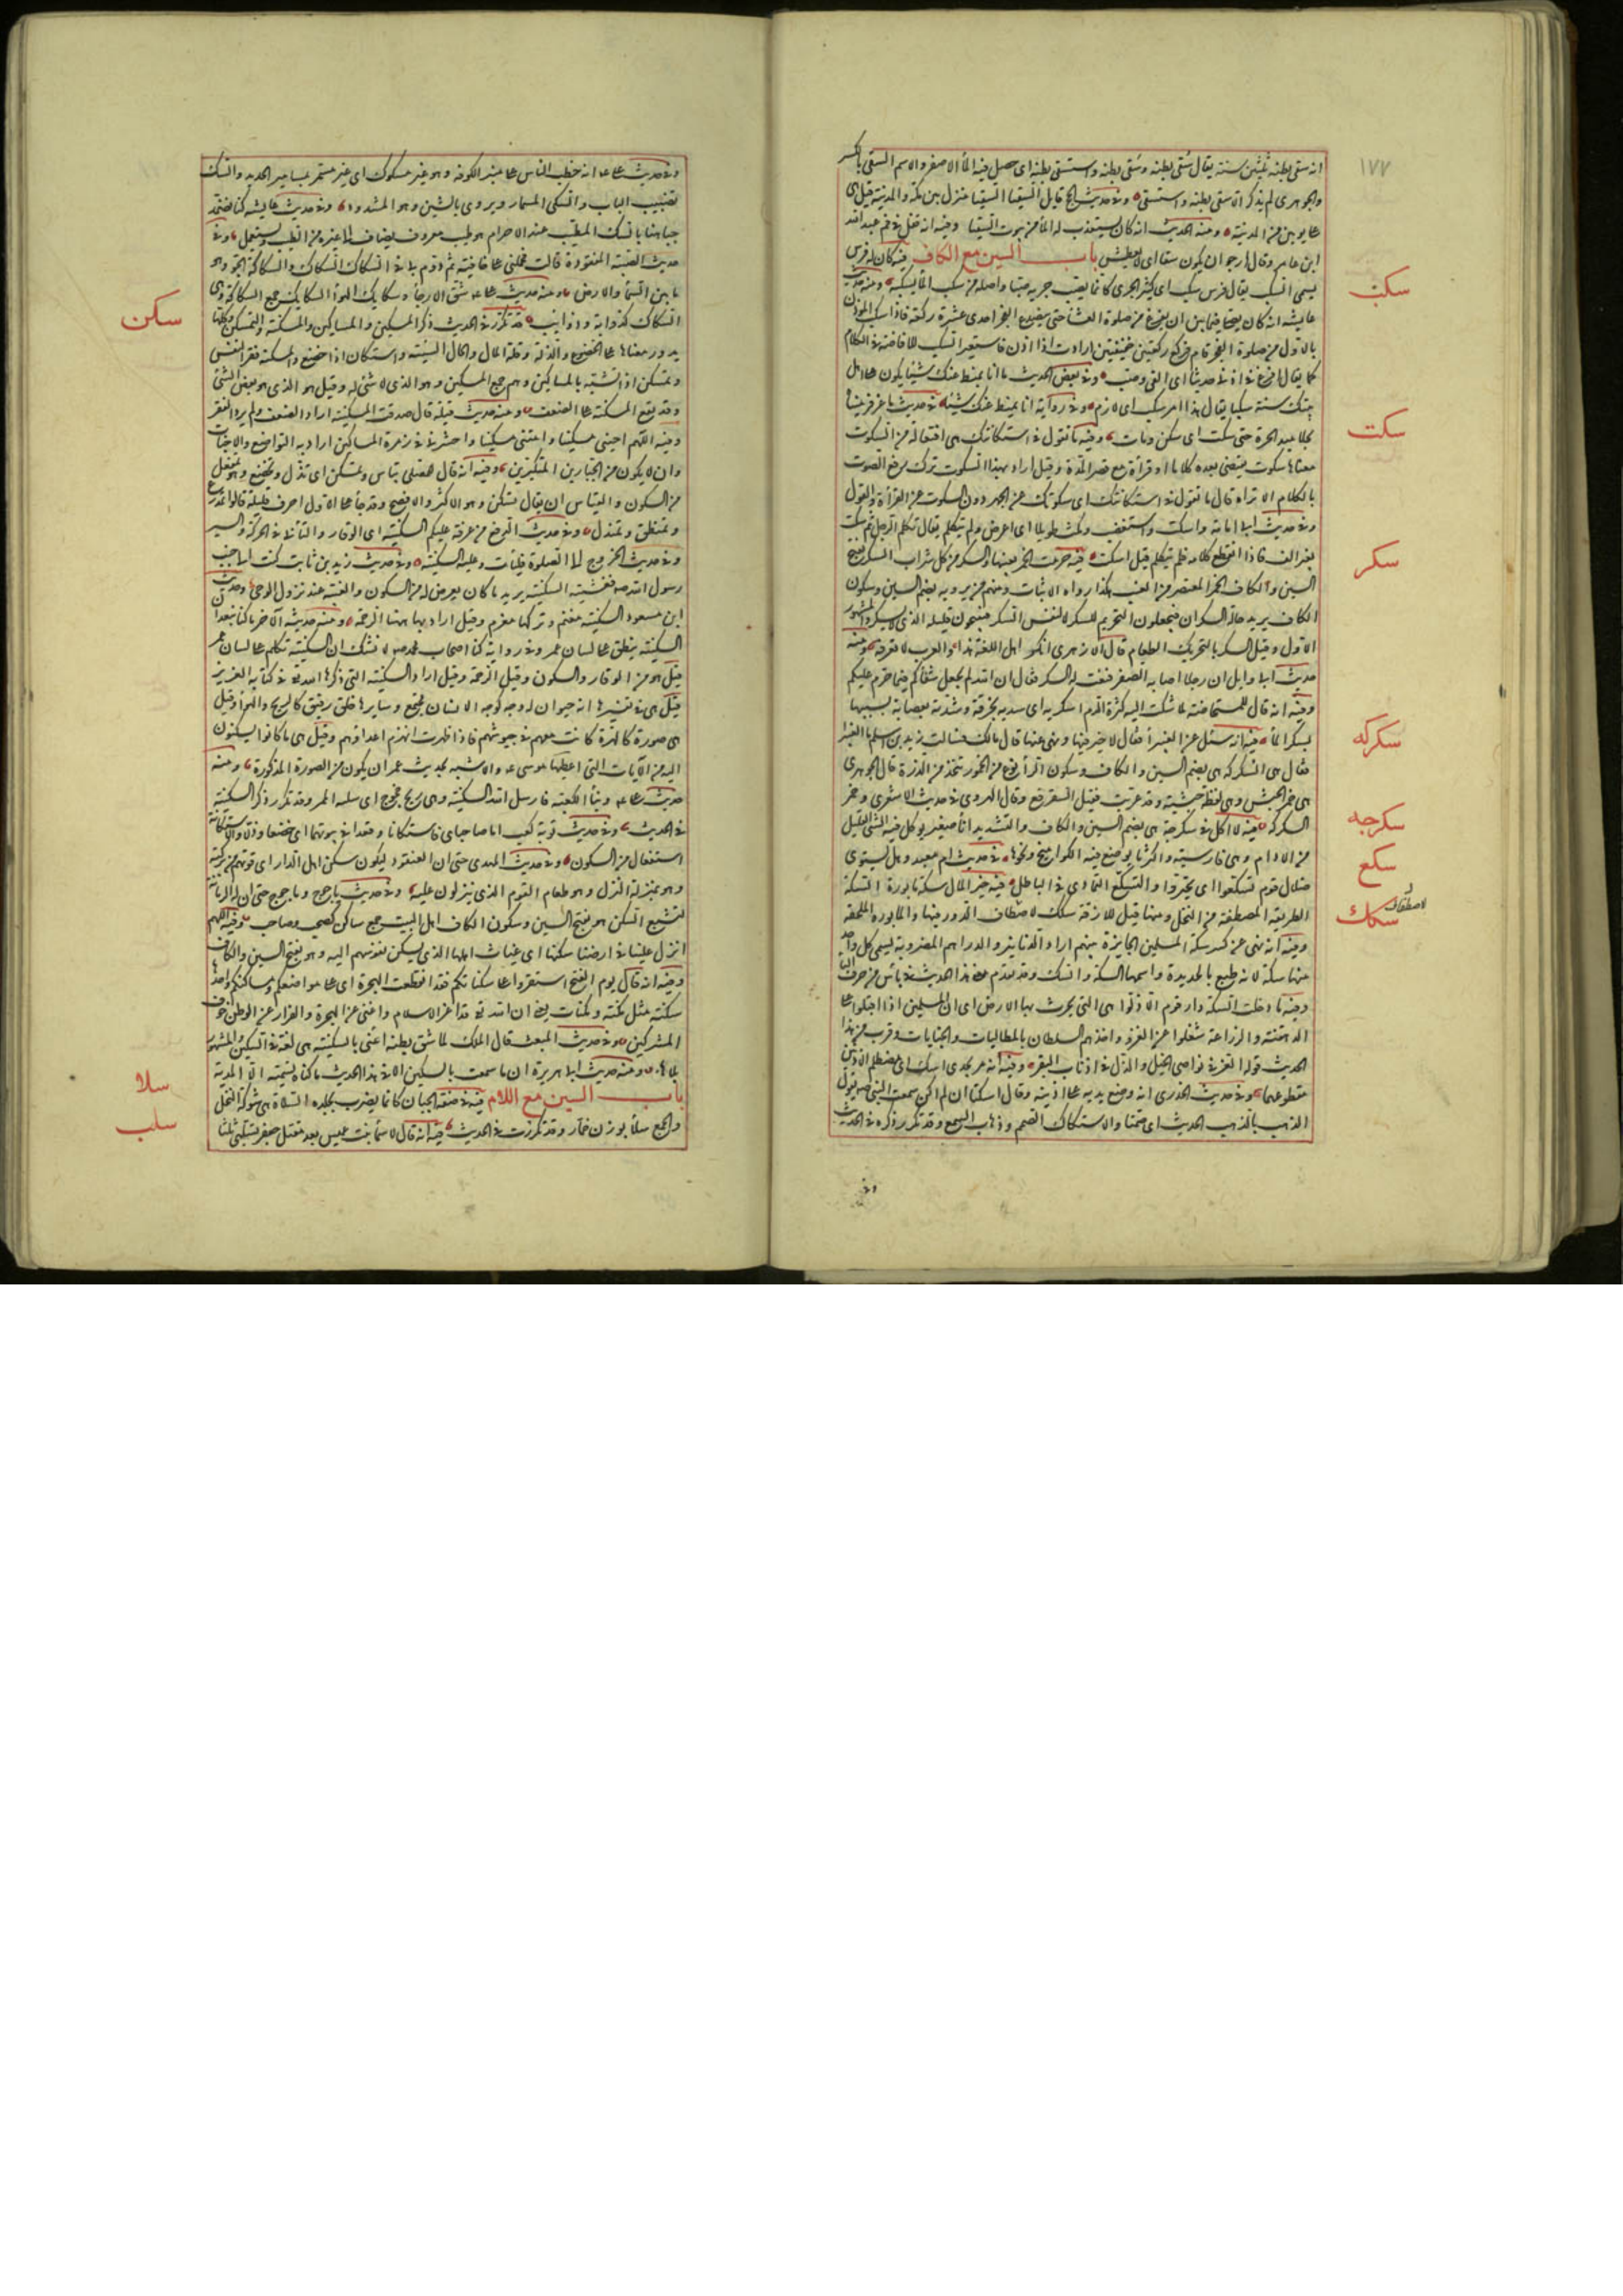 ١٧٧
انه سقى بطنه ثلثين سنة يقال سُقى بطنه وسَقى بطنه واستسقى بطنه اى حصل فيه الماء الاصفر والاسم السقى بالكسر
والجوهرى لم يذكر الا سقى بطنه واستسقى وفى حديث الحج قايل السقيا السقيا منزل بين مكة والمدينة قيل هى
على يومين من المدينة ومنه الحديث انه كان يستعذب له الماء من بيوت السقيا وفيه انه تفل فى فم عبد الله
ابن عامر وقال ارجو ان يكون سقاء اى لا يعطش باب السين مع الكاف فيه كان له فرس
يسمى السكب يقال فرس سكب اى كثير الجرى كانما يصب جريه صبا واصله من سكب الماء يسكبه ومنه حديث
عايشه انه كان يصلى فيما بين ان يفرغ من صلوة العشا حتى ينصدع الفجر احدى عشرة ركعة فاذا سكب المؤذن
بالاول من صلوة الفجر قام فركع ركعتين خفيفتين ارادت اذا اذن فاستعير السكب للافاضة فى الكلام
كما يقال افرغ فى اذنى حديثا اى القى وصب وفى بعض الحديث ما انا بمنط عنك شيئا يكون على اهل
بيتك سنة سكبا يقال هذا امر سكب اى لازم وفى رواية انا نميط عنك شيئا فى حديث ماعز فرميناه
بجلاميد الحرة حتى سكت اى سكن ومات وفيه ما تقول فى اسكاتتك هى افعالة من السكوت
معناها سكوت يقتضى بعده كلاما او قراة مع قصر المدة وقيل اراد بهذا السكوت ترك رفع الصوت
بالكلام الا تراه قال ما تقول فى اسكاتتك اى سكوتك عن الجهر دون السكوت عن القراءة والقول
وفى حديث ابى امامة واسكت واستغضب ومكث طويلا اى اعرض ولم يتكلم يقال تكلم الرجل ثم سكت
بغير الف فاذا انقطع كلامه فلم يتكلم قيل اسكت فيه حرمت الخمر بعينها والسكر من كل شراب السكر بفتح
السين والكاف الخمر المعتصر من العنب هكذا رواه الاثبات ومنهم من يرويه بضم السين وسكون
الكاف يريد حالة السكران فيجعلون التحريم للسكر لا لنفس المسكر فيبيحون قليله الذى لا يسكر والمشهور
الاول وقيل السكر بالتحريك الطعام قال الازهرى انكر اهل اللغة هذا والعرب لا تعرفه ومنه
حديث ابى وايل ان رجلا اصابه الصفر فنعت له السكر فقال ان الله لم يجعل شفاكم فيما حرم عليكم
وفيه انه قال للمستحاضة لما شكت اليه كثرة الدم اسكريه اى سديه بخرقة وشديه بعصابة تشبيها
بسكر الماء فيه انه سئل عن الغبيراء فقال لا خير فيها ونهى عنها قال مالك فسالت زيد بن اسلم ما الغبيراء
فقال هى السكركة هى بضم السين والكاف وسكون الراء نوع من الخمور تتخذ من الذرة قال الجوهرى
هى خمر الحبش وهى لفظة حبشية وقد عربت فقيل السقرقع وقال الهروى فى حديث الاشعرى وخمر
السكركة فيه لا اكل فى سكرجة هى بضم السين والكاف والتشديد اناء صغير يوكل فيه الشى القليل
من الادام وهى فارسية واكثر ما يوضع فيه الكوامخ ونحوها فى حديث ام معبد وهل يستوى
ضلال قوم تسكعوا اى تحيروا والتسكع التمادى فى الباطل فيه خير المال سكة مابورة السكة
الطريقة المصطفة من النخل ومنها قيل للازقة سكك لاصطفاف الدور فيها والمابورة الملقحة
وفيه انه نهى عن كسر سكة المسلمين الجايزة بينهم اراد الدنانير والدراهم المضروبة يسمى كل واحد
منها سكة لانه طبع بالحديدة واسمها السكة والسك وقد تقدم معنى هذا الحديث فى باس من حرف الباء
وفيه ما دخلت السكة دار قوم الا ذلوا هى التى تحرث بها الارض اى ان المسلمين اذا اقبلوا على
الدهقنة والزراعة شغلوا عن الغزو واخذهم السلطان بالمطالبات والجبايات وقريب من هذا
الحديث قوله العز فى نواصى الخيل والذل فى اذناب البقر وفيه انه مر بجدى اسك اى مصطلم الاذنين
مقطوعهما وفى حديث الخدرى انه وضع يديه على اذنيه وقال استكتا ان لم اكن سمعت النبى صم يقول
الذهب بالذهب الحديث اى صمتا والاستكاك الصمم وذهاب السمع وقد تكرر ذكره فى الحديث
وفى
سكب
سكت
سكر
سكركه
سكرجه
سكع
لاصطفاف
سكك
وفى حديث على عه انه خطب الناس على منبر الكوفة وهو غير مسكوك اى غير مسمر بمسامير الحديد والسك
تضبيب الباب والسكى المسمار ويروى بالشين وهو المشدود وفى حديث عايشه كنا نضمد
جباهنا بالسك المطيب عند الاحرام هو طيب معروف يضاف الى غيره من الطيب ويستعمل وفى
حديث الصبية المفقودة قالت فحملنى على خافية ثم دوم بى فى السكاك السكاك والسكاكة الجو وهو
ما بين السماء والارض ومنه حديث على عه شق الارجاء وسكايك الهواء السكايك جمع السكاكة وهى
السكاك كذوابة وذوايب قد تكرر فى الحديث ذكر المسكين والمساكين والمسكنة والتمسكن وكلها
يدور معناها على الخضوع والذلة وقلة المال والحال السيئة واستكان اذا خضع والمسكنة فقر النفس
وتمسكن اذا تشبه بالمساكين وهم جمع المسكين وهو الذى لا شئ له وقيل هو الذى له بعض الشئ
وقد تقع المسكنة على الضعف ومنه حديث قيلة قال صدقت المسكينة اراد الضعف ولم يرد الفقر
وفيه اللهم احينى مسكينا وامتنى مسكينا واحشرنى فى زمرة المساكين اراد به التواضع والاخبات
وان لا يكون من الجبارين المتكبرين وفيه انه قال للمصلى تباس وتمسكن اى تذلل وتخضع وهو تمفعل
من السكون والقياس ان يقال تسكن وهو الاكثر والافصح وقد جاء على الاول احرف قليلة قالوا تمدرع
وتمنطق وتمندل وفى حديث الدفع من عرفة عليكم السكينة اى الوقار والتانى فى الحركة والسير
وفى حديث الخروج الى الصلوة فليات وعليه السكينة وفى حديث زيد بن ثابت كنت الى جنب
رسول الله صم فغشيته السكينة يريد ما كان يعرض له من السكون والغيبة عند نزول الوحى وحديث
ابن مسعود السكينة مغنم وتركها مغرم وقيل اراد بها ههنا الرحمة ومنه حديثه الآخر ما كنا نبعد ان
السكينة ينطق على لسان عمر وفى رواية كنا اصحاب محمد صم لا نشك ان السكينة تكلم على لسان عمر
قيل هو من الوقار والسكون وقيل الرحمة وقيل اراد السكينة التى ذكرها الله تع فى كتابه العزيز
قيل فى تفسيرها انه حيوان له وجه كوجه الانسان مجتمع وسايرها خلق رقيق كالريح والهواء وقيل
هى صورة كالهرة كانت معهم فى جيوشهم فاذا ظهرت انهزم اعداؤهم وقيل هى ما كانوا يسكنون
اليه من الآيات التى اعطيها موسى عه والاشبه بحديث عمر ان يكون من الصورة المذكورة ومنه
حديث على عه وبناء الكعبة فارسل الله السكينة وهى ريح خجوج اى سريعة الممر وقد تكرر ذكر السكينة
فى الحديث وفى حديث توبة كعب اما صاحباى فاستكانا وقعدا فى بيوتهما اى خضعا وذلا والاستكانة
استفعال من السكون وفى حديث المهدى حتى ان العنقود ليكون سكن اهل الدار اى قوتهم من بركته
وهو بمنزلة النزل وهو طعام القوم الذى ينزلون عليه وفى حديث ياجوج وماجوج حتى ان الرمانة
لتشبع السكن هو بفتح السين وسكون الكاف اهل البيت جمع ساكن كصحب وصاحب وفيه اللهم
انزل علينا فى ارضنا سكنها اى غياث اهلها الذى يسكن نفوسهم اليه وهو بفتح السين والكاف
وفيه انه قال يوم الفتح استقروا على سكناتكم فقد انقطعت الهجرة اى على مواضعكم ومساكنكم واحدها
سكنة مثل مكنة ومكنات يعنى ان الله تع قد اعز الاسلام واغنى عن الهجرة والفرار عن الوطن خوف
المشركين وفى حديث المبعث قال الملك لما شق بطنه ائتنى بالسكينة هى لغة فى السكين والمشهور
بلا هاء ومنه حديث ابى هريرة ان ما سمعت بالسكين الا فى هذا الحديث ما كنا نسميه الا المدية
باب السين مع اللام فيه فى صفة الجبان كانما يضرب بجلده السلاة هى شوكة النخل
والجمع سلاء بوزن خمار وقد تكررت فى الحديث فيه انه قال لاسماء بنت عميس بعد مقتل جعفر تسلبى ثلثا
سكن
سلا
سلب